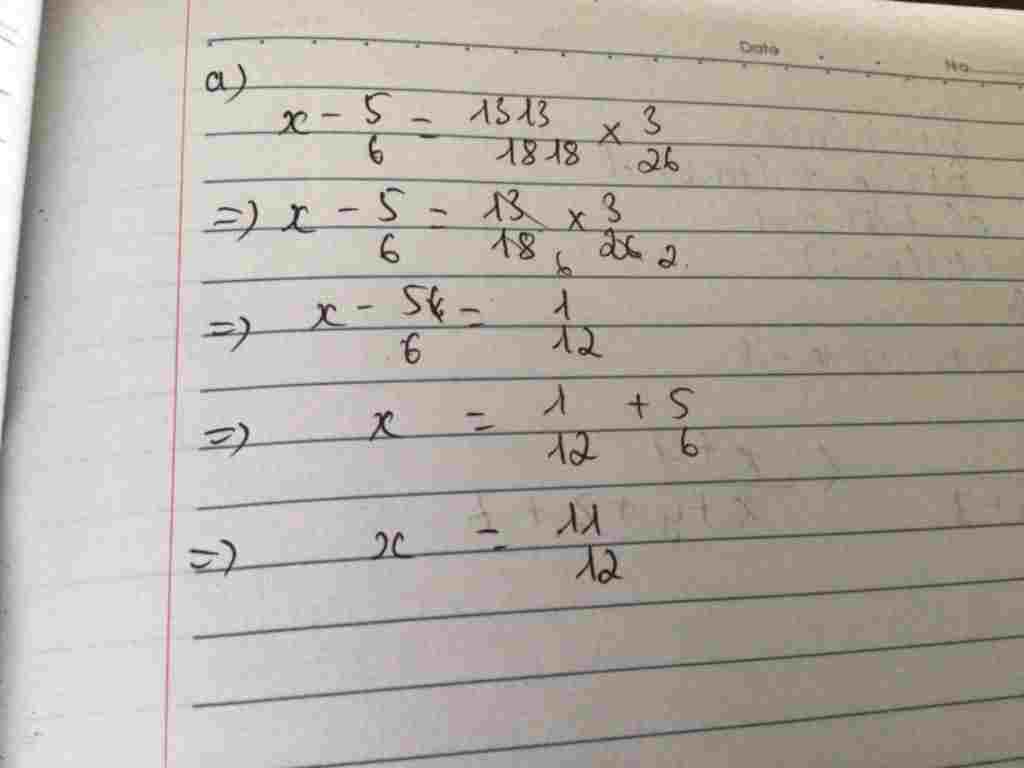 Date
No
a)
x - 5/6 = 1313/1818 × 3/26
=) x - 5/6 = 13/18 6 × 3/26 2
=) x - 5/6 = 1/12
=) x = 1/12 + 5/6
=) x = 11/12